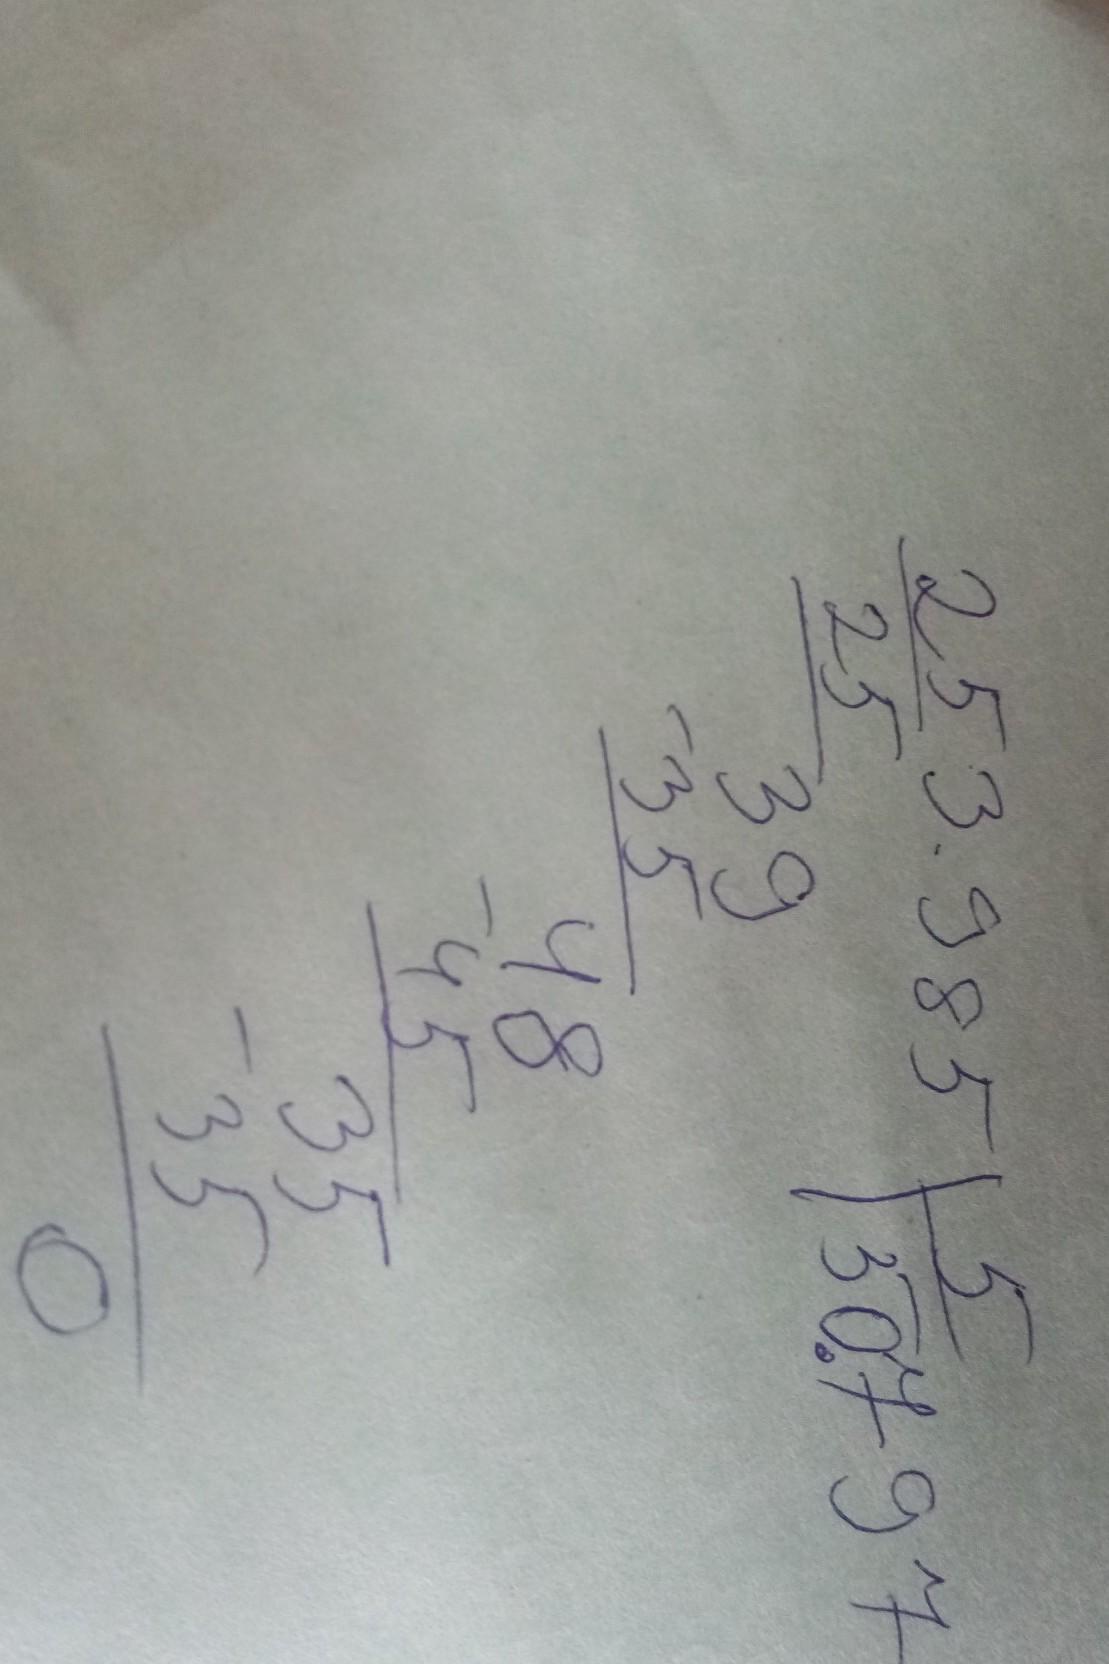 253.985 5
25 50.797
39
-35
48
-45
35
-35
0